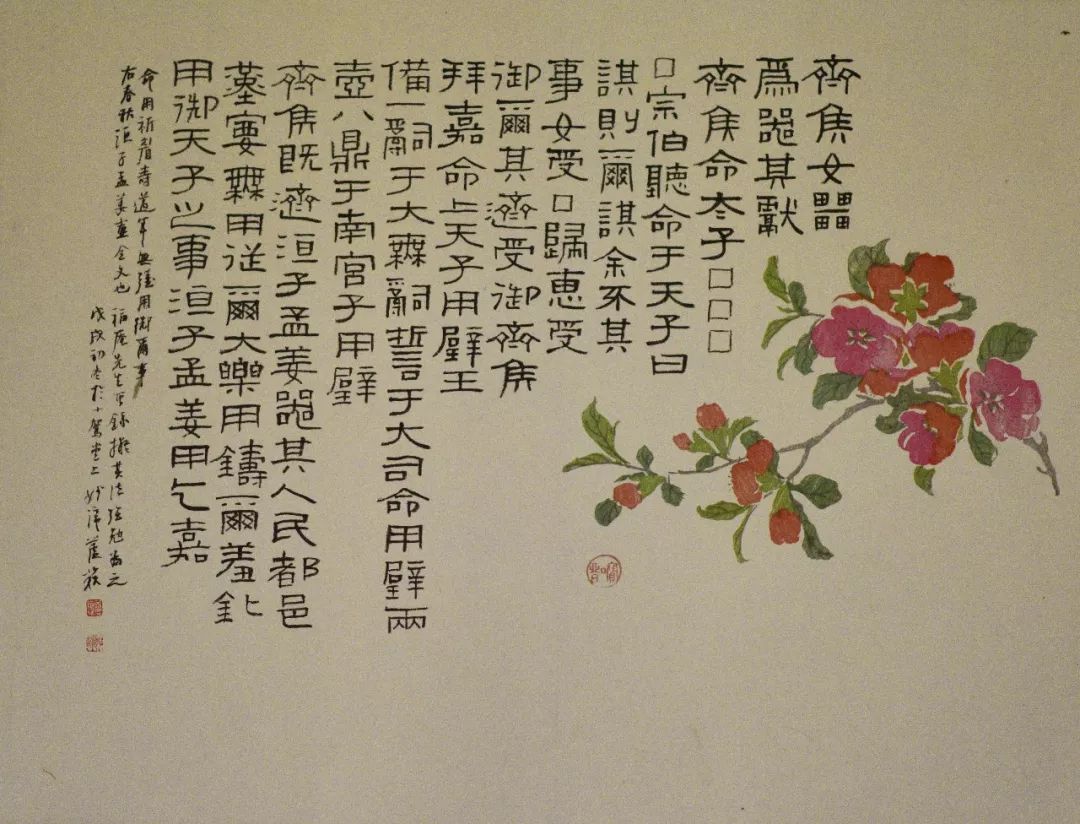 齊侯女雷
爲器其獻
齊侯命大子□□□
□宗伯聽命于天子曰
諆則爾諆余不其
事女受□歸惠受
御爾其遵受御齊侯
拜嘉命上天子用璧玉
備一嗣于大無嗣誓于大司命用璧兩
壺八鼎于南宮子用璧
齊侯既遵洹子孟姜器其人民都邑
堇寠舞用從爾大樂用鑄爾羞釦
用御天子之事洹子孟姜用乞嘉
命用祈眉壽萬年無疆用御爾事
右春秋洹子孟姜壺全文也
戊戌初冬於十駕齋上